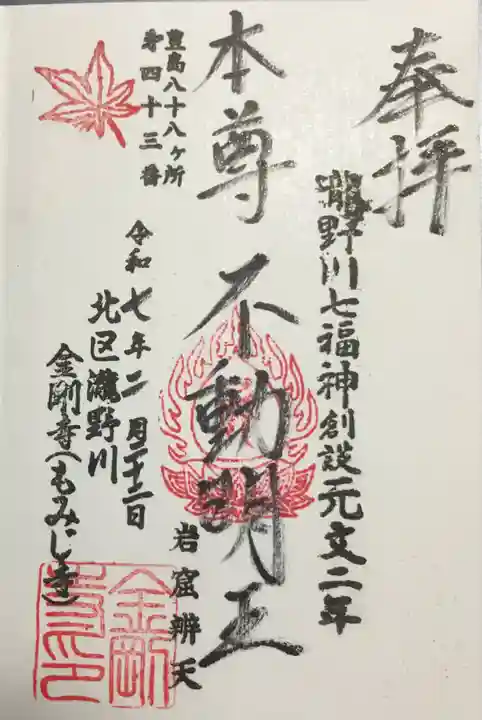 奉拝
瀧野川七福神創設元文二年
本尊 不動明王
岩窟辨天
豊島八十八ヶ所
第四十三番
令和七年二月二十二日
北区瀧野川
金剛寺(もみじ寺)
金剛
寺印